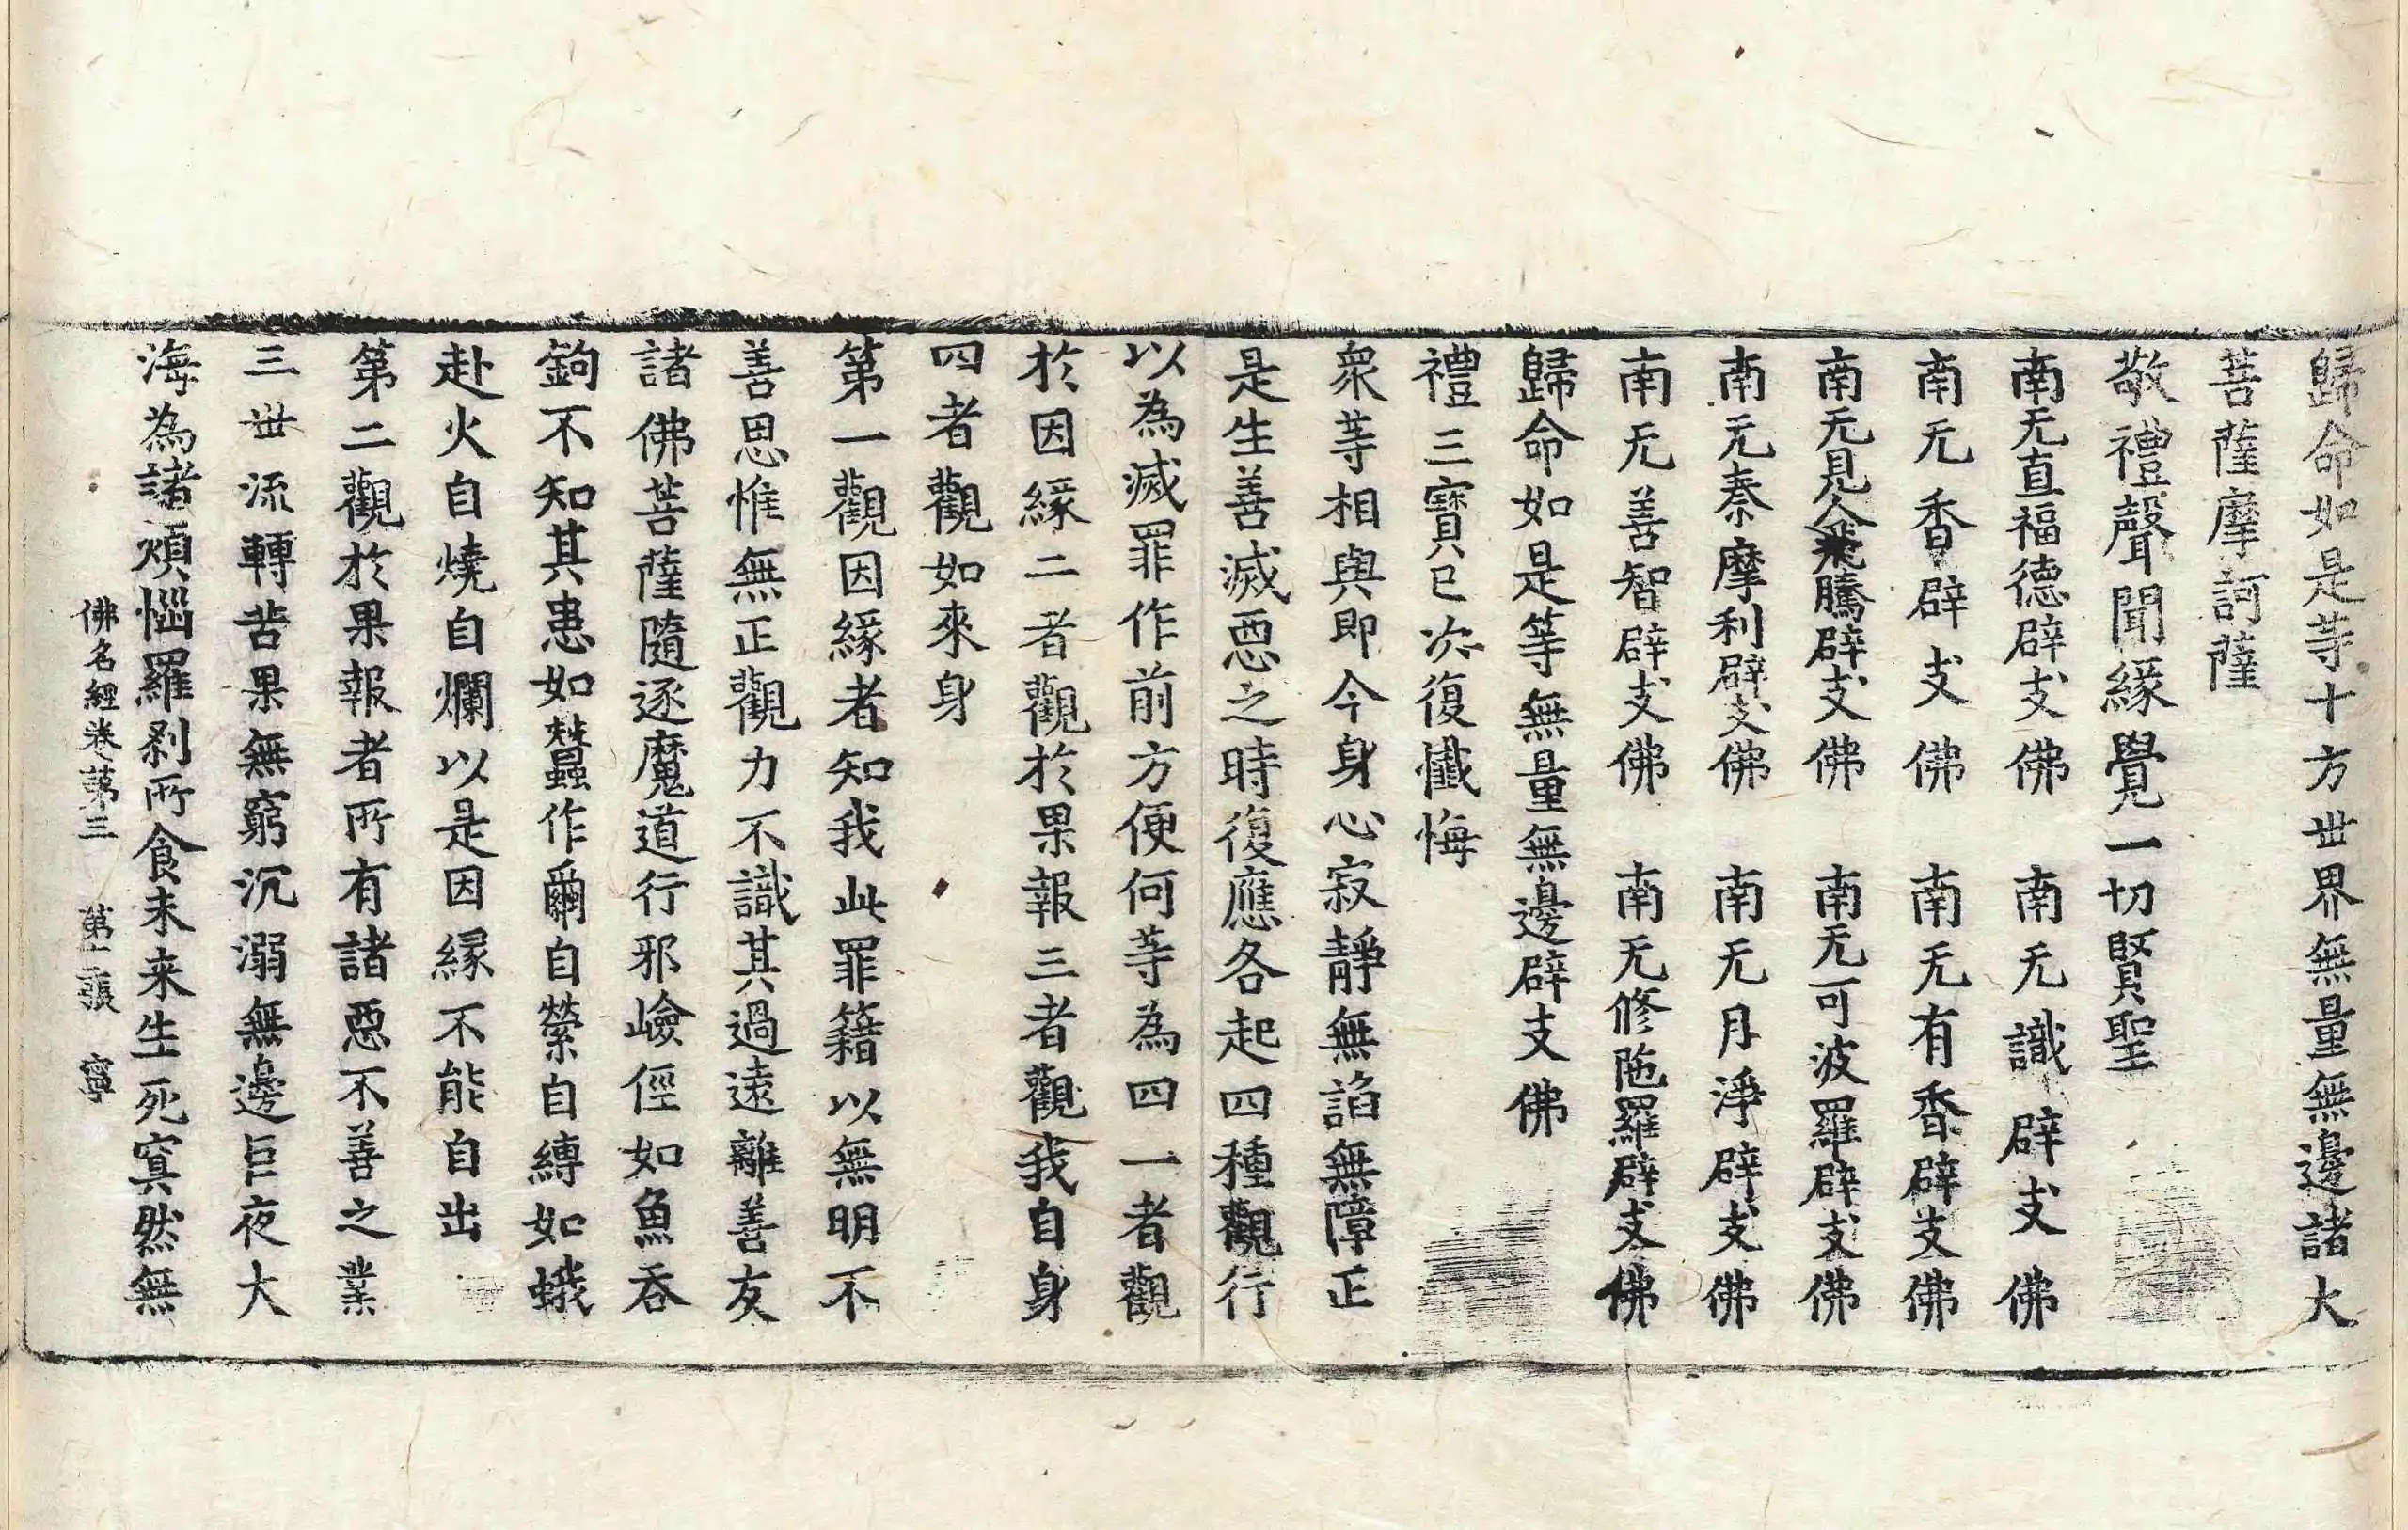 歸命如是等十方世界無量無邊諸大
菩薩摩訶薩
敬禮聲聞緣覺一切賢聖
南无直福德辟支佛　南无識辟支佛
南无香辟支佛　南无有香辟支佛
南无見人飛騰辟支佛　南无可波羅辟支佛
南无秦摩利辟支佛　南无月淨辟支佛
南无善智辟支佛　南无修陁羅辟支佛
歸命如是等無量無邊辟支佛
禮三寶已次復懺悔
衆等相與即今身心寂靜無諂無障正
是生善滅惡之時復應各起四種觀行
以為滅罪作前方便何等為四一者觀
於因緣二者觀於果報三者觀我自身
四者觀如來身
第一觀因緣者知我此罪籍以無明不
善思惟無正觀力不識其過遠離善友
諸佛菩薩隨逐魔道行邪嶮徑如魚吞
鉤不知其患如蠶作繭自縈自縛如蛾
赴火自燒自爛以是因緣不能自出
第二觀於果報者所有諸惡不善之業
三世流轉苦果無窮沉溺無邊巨夜大
海為諸煩惱羅剎所食未来生死冥然無
佛名經卷第三　第十二張　寧